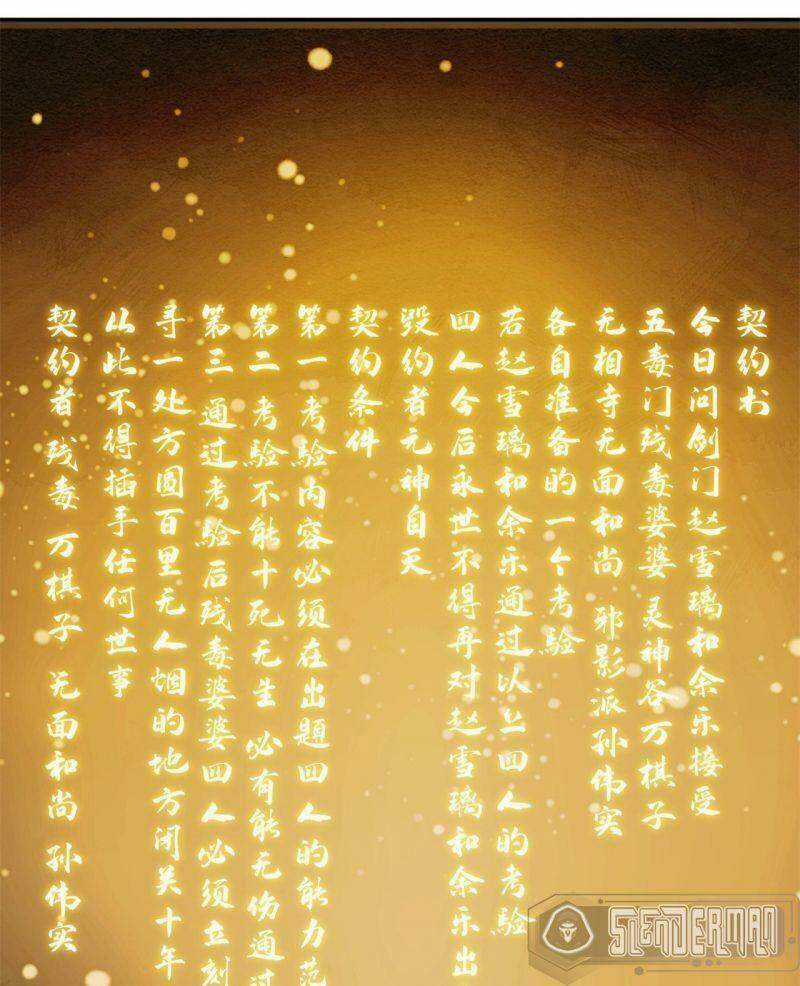 契约书
今日问剑门赵雪璃和余乐接受
五毒门残毒婆婆 灵神谷万棋子
无相寺无面和尚 邪影派孙伟实
各自准备的一个考验
若赵雪璃和余乐通过以上四人的考验
四人今后永世不得再对赵雪璃和余乐出
毁约者元神自灭
契约条件
第一 考验内容必须在出题四人的能力范
第二 考验不能十死无生 必有能无伤通过
第三 通过考验后残毒婆婆四人必须立刻
寻一处方圆百里无人烟的地方闭关十年
从此不得插手任何世事
契约者 残毒 万棋子 无面和尚 孙伟实
SLENDERMAN